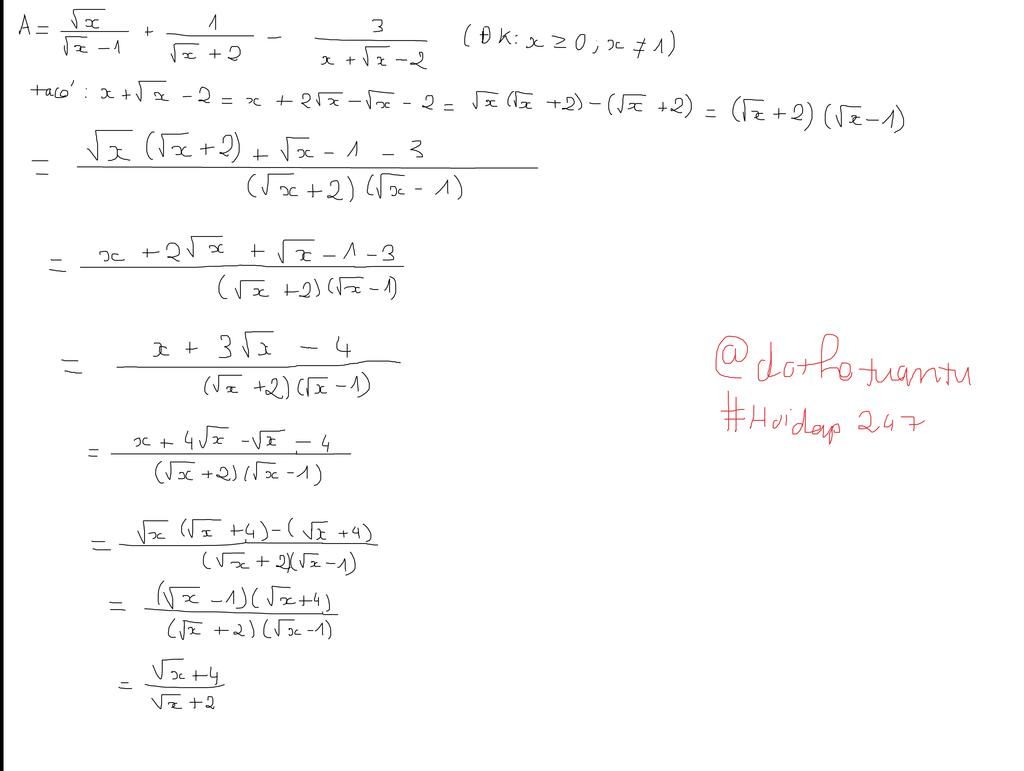 A = √x/(√x − 1) + 1/(√x + 2) − 3/(x + √x − 2) (ĐK: x ≥ 0; x ≠ 1)
ta có: x + √x − 2 = x + 2√x − √x − 2 = √x(√x + 2) − (√x + 2) = (√x + 2)(√x − 1)
= (√x(√x + 2) + √x − 1 − 3)/((√x + 2)(√x − 1))
= (x + 2√x + √x − 1 − 3)/((√x + 2)(√x − 1))
= (x + 3√x − 4)/((√x + 2)(√x − 1))
= (x + 4√x − √x − 4)/((√x + 2)(√x − 1))
= (√x(√x + 4) − (√x + 4))/((√x + 2)(√x − 1))
= ((√x − 1)(√x + 4))/((√x + 2)(√x − 1))
= (√x + 4)/(√x + 2)
@dothotuantu
#Hoidap 247